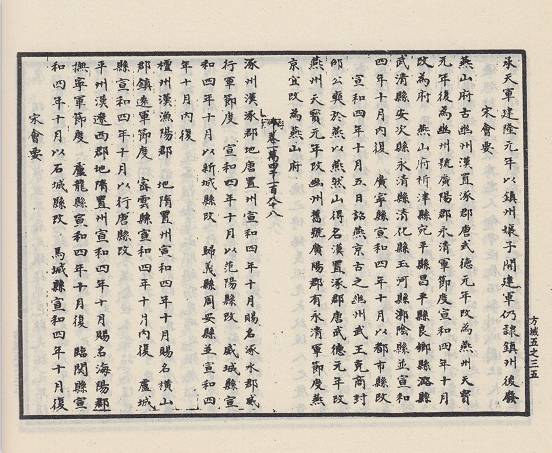 方域五之三五
承天軍建隆元年以鎮州娘子關建軍仍隸鎮州後廢
宋會要
燕山府古幽州漢置涿郡唐武德元年改為燕州天寶
元年復為幽州號廣陽郡永清軍節度宣和四年十月
改為府 燕山府析津縣宛平縣昌平縣良鄉縣潞縣
武清縣安次縣永清縣清化縣玉河縣漷陰縣並宣和
四年十月內復 廣寧縣宣和四年十月以都市縣改
宣和四年十月五日詔燕京古之幽州武王克商封
邵公奭於燕以燕然山得名漢置涿郡唐武德元年改
燕州天寶元年改幽州舊號廣陽郡有永清軍節度燕
京宜改為燕山府
卷一萬四千一百八十八
涿州漢涿郡地唐置州宣和四年十月賜名涿水郡威
行軍節度 宣和四年十月以范陽縣改 威城縣宣
和四年十月以新城縣改 歸義縣周安縣並宣和四
年十月內復
檀州漢漁陽郡 地隋置州宣和四年十月賜名橫山
郡鎮遠軍節度 密雲縣宣和四年十月內復 盧城
縣宣和四年十月以行唐縣改
平州漢遼西郡地隋置州宣和四年十月賜名海陽郡
撫寧軍節度 盧龍縣宣和四年十月復 臨關縣宣
和四年十月以石城縣改 馬城縣宣和四年十月復
宋會要